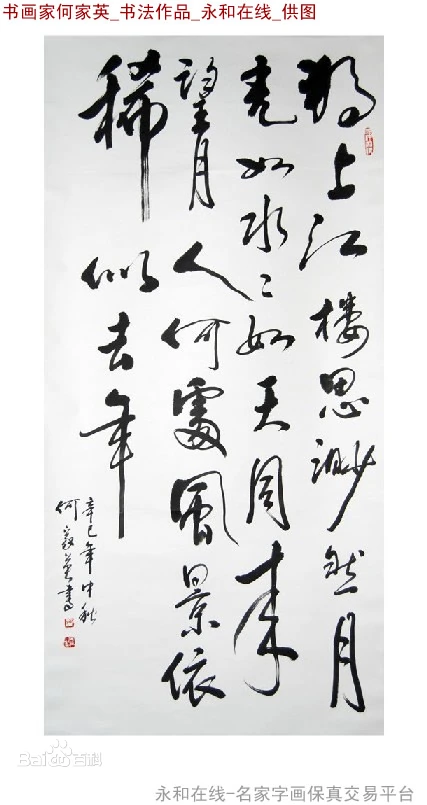 书画家何家英_书法作品_永和在线_供图
獨上江楼思渺然月
光如水〻如天同来
望月人何處風景依
稀似去年
辛巳年中秋
何家英書
Bai百科
永和在线-名家字画保真交易平台